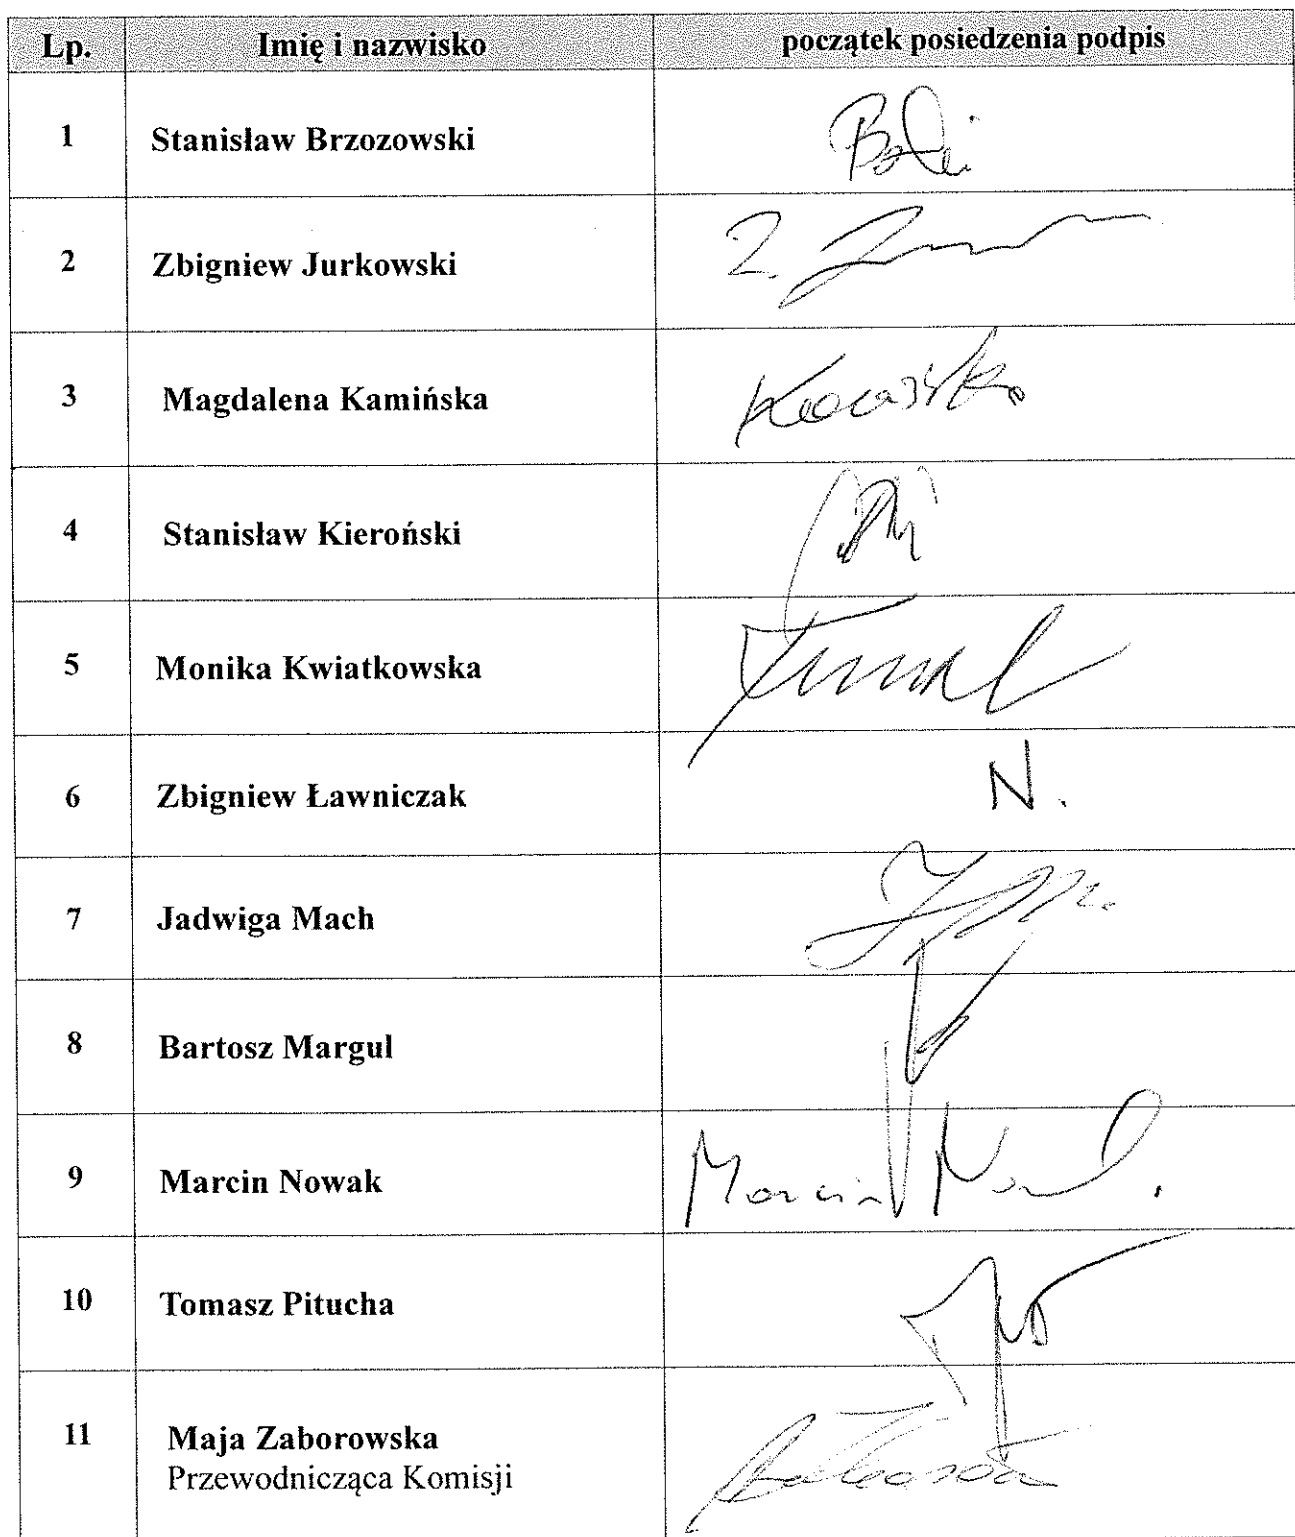 Lp. Imię i nazwisko początek posiedzenia podpis
1 Stanisław Brzozowski
2 Zbigniew Jurkowski Z.
3 Magdalena Kamińska
4 Stanisław Kieroński
5 Monika Kwiatkowska
6 Zbigniew Ławniczak N.
7 Jadwiga Mach
8 Bartosz Margul
9 Marcin Nowak Marcin Nowak
10 Tomasz Pitucha
11 Maja Zaborowska
Przewodnicząca Komisji